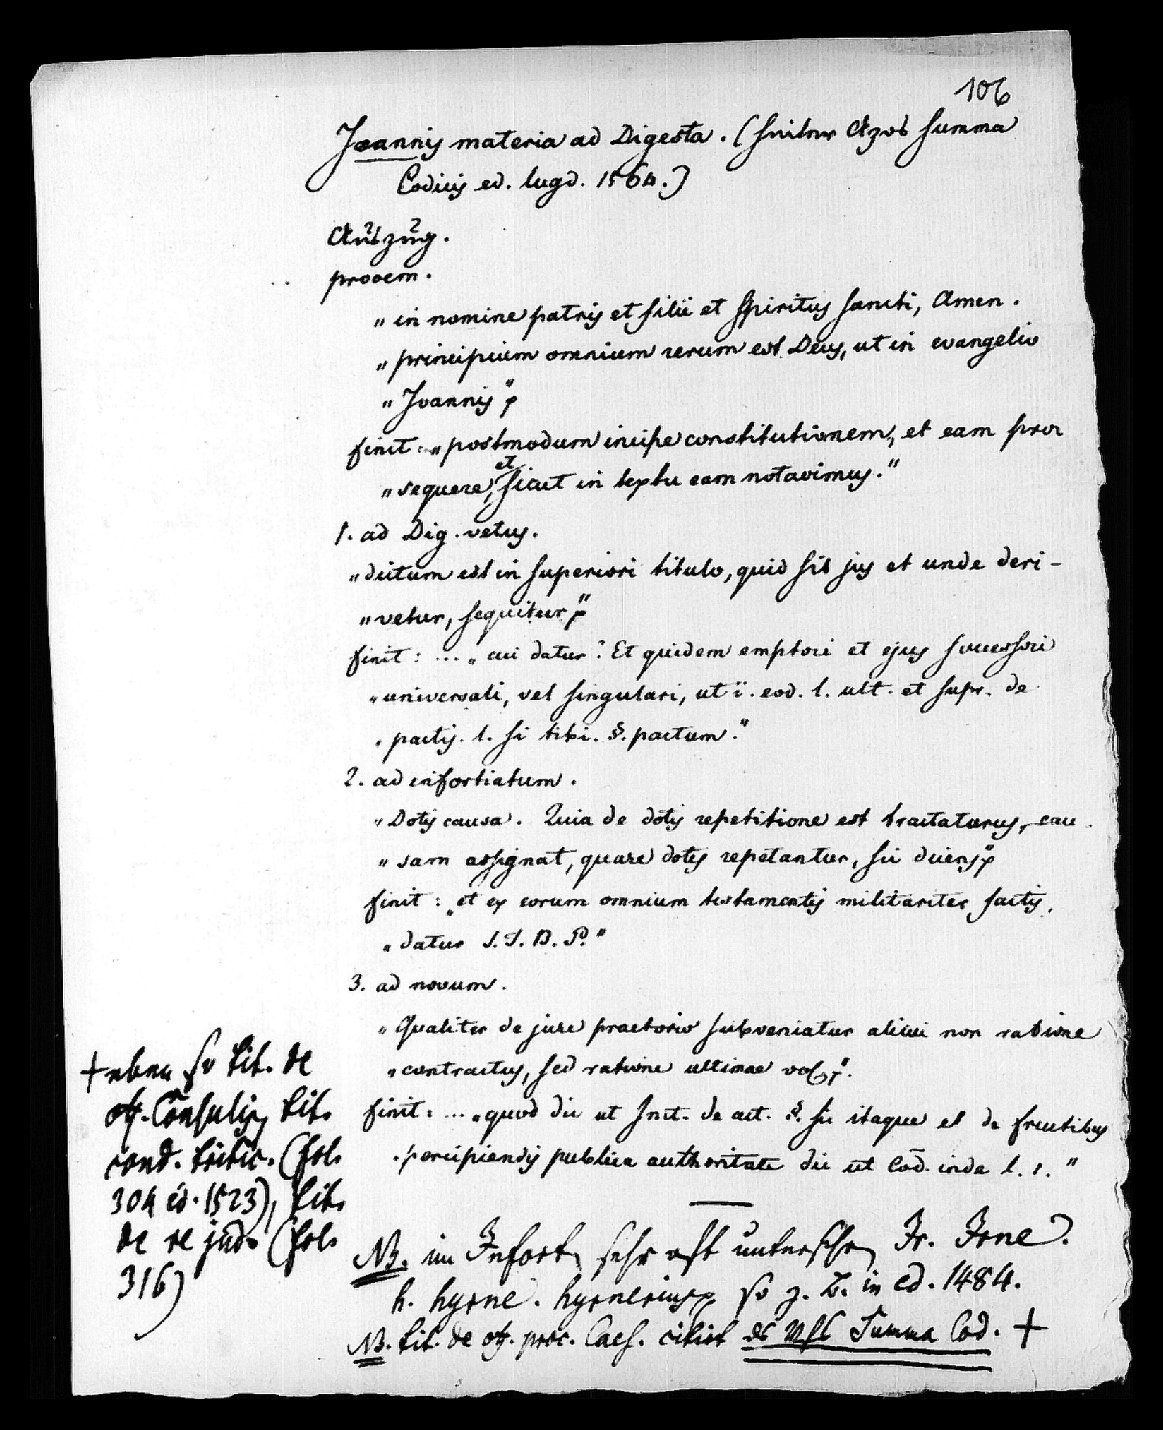 106
Joannis materia ad Digesta. (hinter Azos Summa
Codicis ed. lugd. 1564.)
Auszug.
prooem.
„ in nomine patris et filii et Spiritus sancti, Amen.
„ principium omnium rerum est Deus, ut in evangelio
„ Joannis"
finit: „ postmodum incipe constitutionem, et eam pro
„ sequere, et sicut in textu eam notavimus."
1. ad Dig. vetus.
„ dictum est in superiori titulo, quid sit jus et unde deri-
„ vetur, sequitur"
finit: ... „ cui datur? Et quidem emptori et ejus successori
„ universali, vel singulari, ut i. eod. l. ult. et supr. de
„ pactis. l. si tibi. §. pactum."
2. ad infortiatum.
„ Dotis causa. Quia de dotis repetitione est tractaturus, cau
„ sam assignat, quare dotis repetantur, sic dicens"
finit: „ et ex eorum omnium testamentis militariter factis,
„ datur I. I. B. P."
3. ad novum.
„ Qualiter de jure praetorio subveniatur alicui non ratione
„ contractus, sed ratione ultimae vol".
finit: ... „ quod dic ut Inst. de act. §. sic itaque et de fructibus
„ percipiendis publica authoritate dic ut Cod. inde l. 1."
NB. im Infort. sehr oft unterschr. Ir. Irne.
h. hyrne. hyrnerius so z. B. in ed. 1484.
NB. tit. de off. proc. Caes. citirt es Summa Cod. +
+ eben so tit. de
off. Consulis, tit.
cond. tritic. (fol.
304 ed. 1523), tit.
de re jud. (fol.
316)